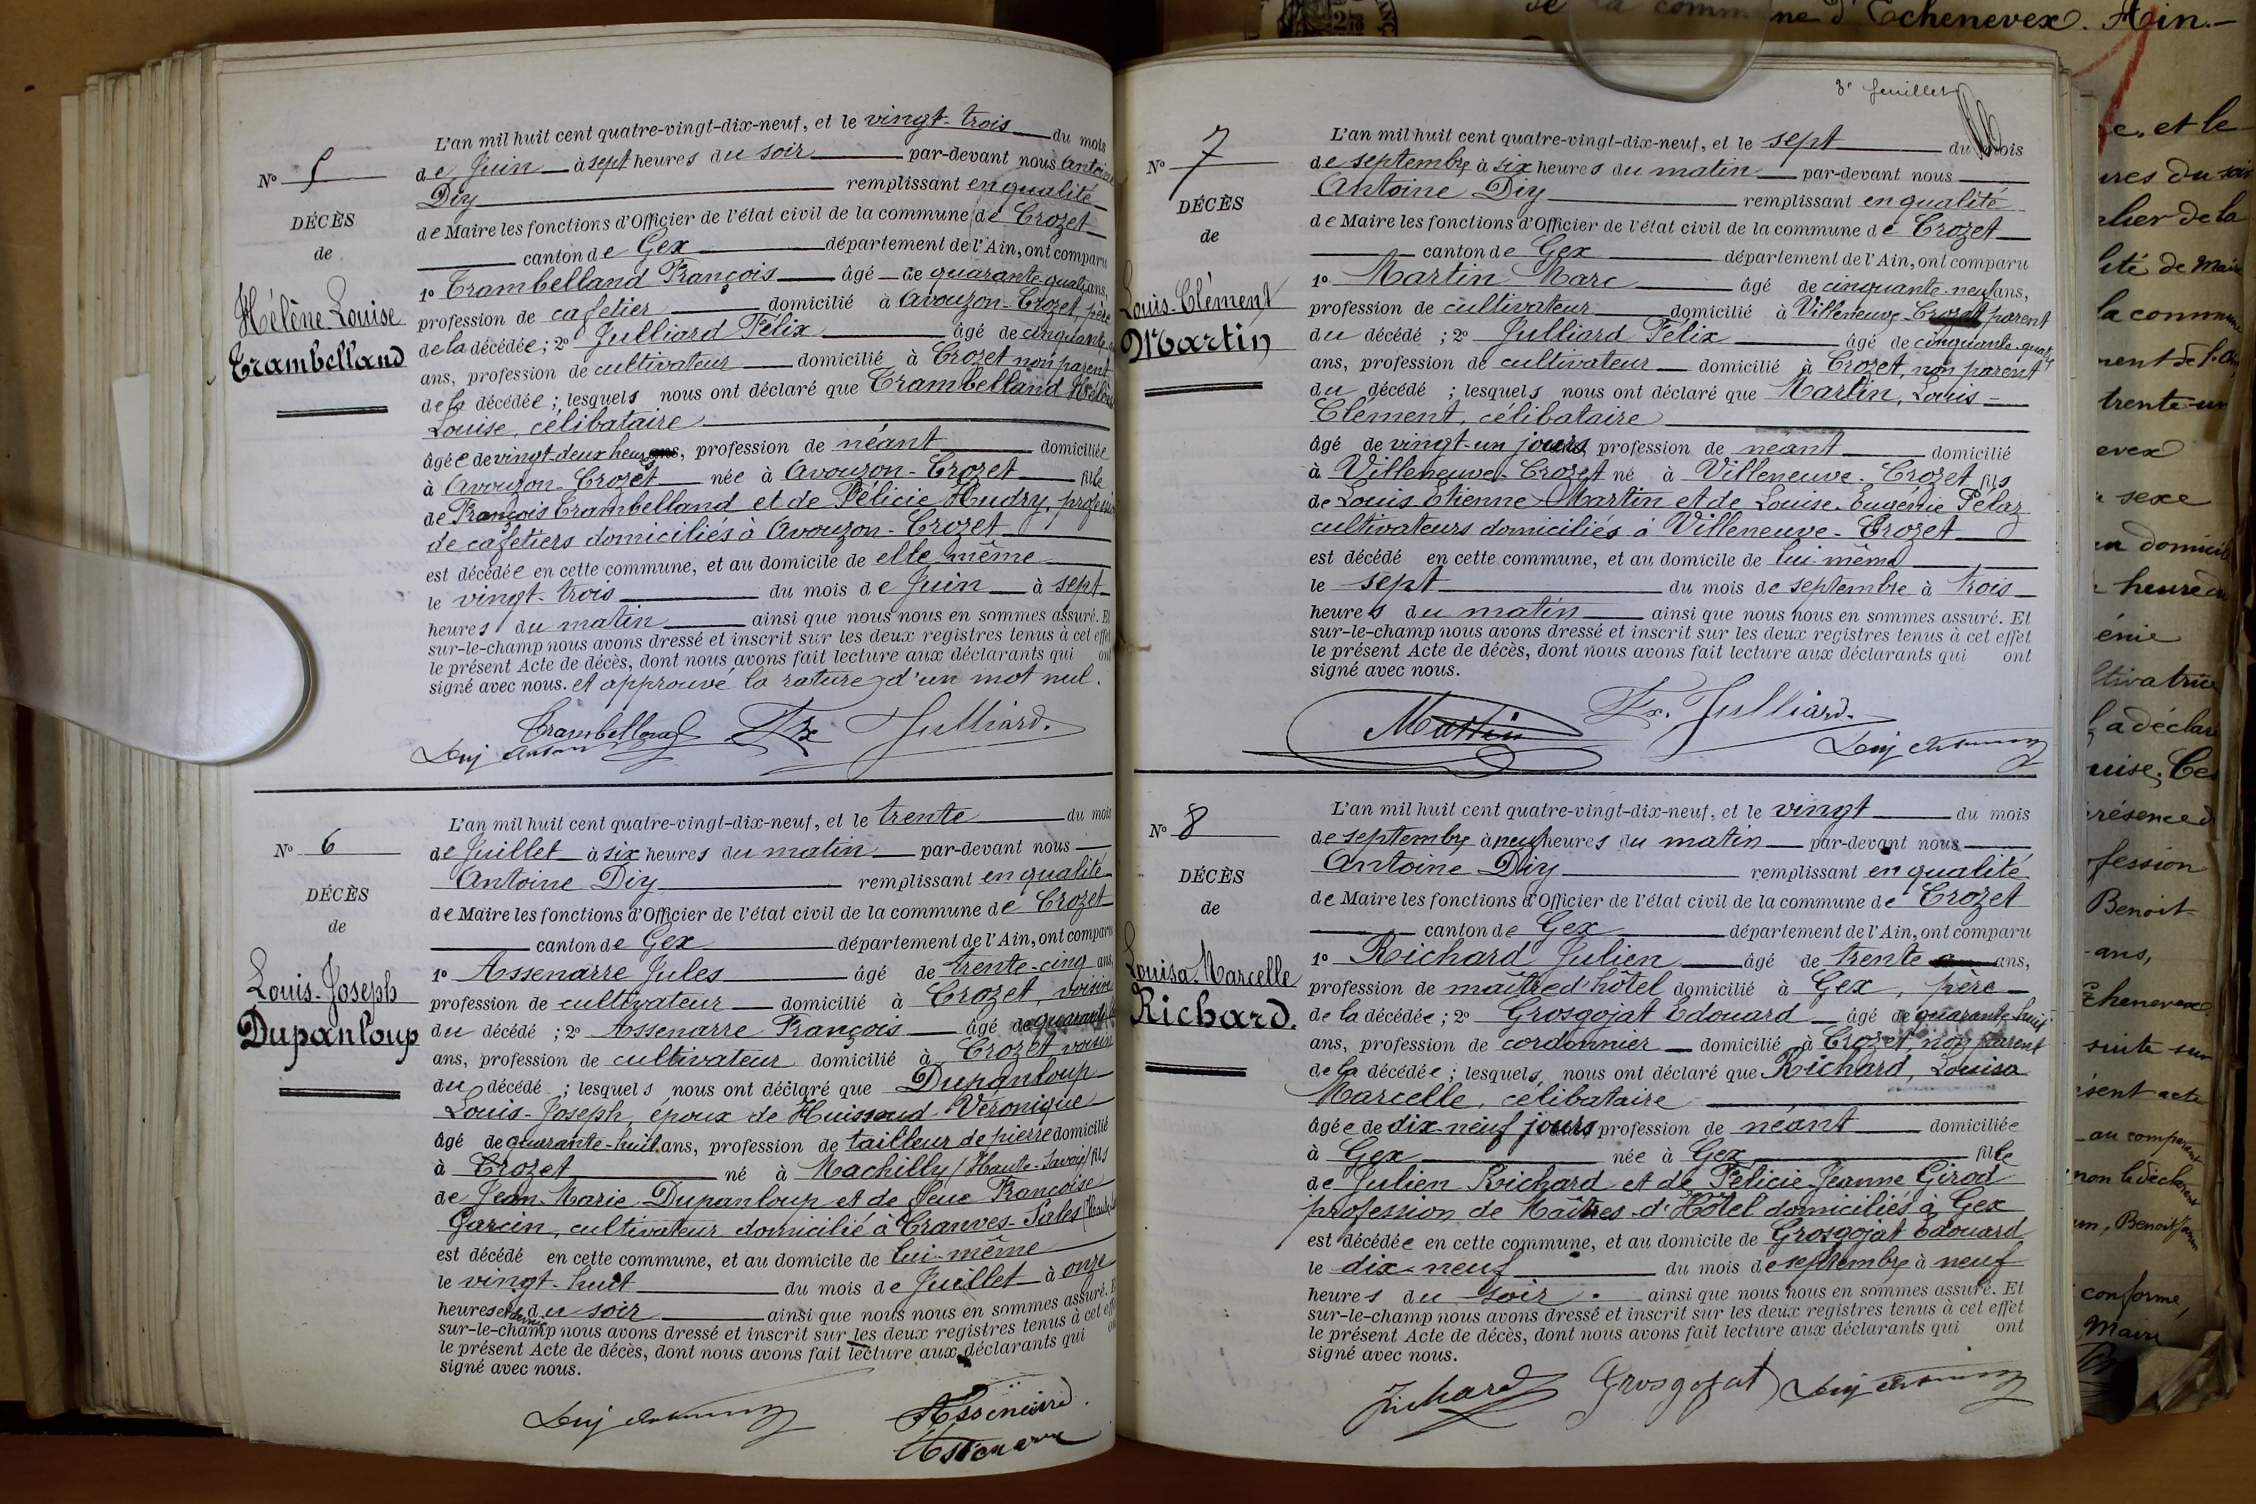 N° 5
DÉCÈS
de
Hélène Louise
Trambelland
L'an mil huit cent quatre-vingt-dix-neuf, et le vingt-trois du mois
de Juin à sept heures du soir par-devant nous Antoine
Diy remplissant en qualité
de Maire les fonctions d'Officier de l'état civil de la commune de Crozet
canton de Gex département de l'Ain, ont comparu
1° Trambelland François âgé de quarante-quatre ans,
profession de cafetier domicilié à Avouzon-Crozet, père
de la décédée; 2° Julliard Félix âgé de cinquante
ans, profession de cultivateur domicilié à Crozet non parent
de la décédée; lesquels nous ont déclaré que Trambelland Hélène
Louise, célibataire
âgée de vingt-deux heures ans, profession de néant domiciliée
à Avouzon-Crozet née à Avouzon-Crozet fille
de François Trambelland et de Félicie Hudry, profession
de cafetiers domiciliés à Avouzon-Crozet
est décédée en cette commune, et au domicile de elle même
le vingt-trois du mois de Juin à sept
heures du matin ainsi que nous nous en sommes assuré. Et
sur-le-champ nous avons dressé et inscrit sur les deux registres tenus à cet effet
le présent Acte de décès, dont nous avons fait lecture aux déclarants qui ont
signé avec nous. et approuvé la rature d'un mot nul.
Trambelland Fx Julliard.
Diy Antoine
N° 6
DÉCÈS
de
Louis-Joseph
Dupanloup
L'an mil huit cent quatre-vingt-dix-neuf, et le trente du mois
de Juillet à six heures du matin par-devant nous
Antoine Diy remplissant en qualité
de Maire les fonctions d'Officier de l'état civil de la commune de Crozet
canton de Gex département de l'Ain, ont comparu
1° Assenarre Jules âgé de trente-cinq ans,
profession de cultivateur domicilié à Crozet, voisin
du décédé; 2° Assenarre François âgé de quarante
ans, profession de cultivateur domicilié à Crozet voisin
du décédé; lesquels nous ont déclaré que Dupanloup
Louis-Joseph, époux de Huissoud Véronique
âgé de quarante-huit ans, profession de tailleur de pierre domicilié
à Crozet né à Machilly (Haute-Savoie) fils
de Jean-Marie Dupanloup et de feue Françoise
Garcin, cultivateur domicilié à Cranves-Sales
est décédé en cette commune, et au domicile de lui-même
le vingt-huit du mois de Juillet à onze
heures et demie du soir ainsi que nous nous en sommes assuré. Et
sur-le-champ nous avons dressé et inscrit sur les deux registres tenus à cet effet
le présent Acte de décès, dont nous avons fait lecture aux déclarants qui ont
signé avec nous.
Diy Antoine Assenarre
Assenarre
3e feuillet
N° 7
DÉCÈS
de
Louis-Clément
Martin
L'an mil huit cent quatre-vingt-dix-neuf, et le sept du mois
de septembre à six heures du matin par-devant nous
Antoine Diy remplissant en qualité
de Maire les fonctions d'Officier de l'état civil de la commune de Crozet
canton de Gex département de l'Ain, ont comparu
1° Martin Marc âgé de cinquante-neuf ans,
profession de cultivateur domicilié à Villeneuve-Crozet parent
du décédé; 2° Julliard Félix âgé de cinquante-quatre
ans, profession de cultivateur domicilié à Crozet, non parent
du décédé; lesquels nous ont déclaré que Martin, Louis-
Clément, célibataire
âgé de vingt-un jours, profession de néant domicilié
à Villeneuve-Crozet né à Villeneuve-Crozet fils
de Louis Etienne Martin et de Louise Eugénie Pélaz
cultivateurs domiciliés à Villeneuve-Crozet
est décédé en cette commune, et au domicile de lui-même
le sept du mois de septembre à trois
heures du matin ainsi que nous nous en sommes assuré. Et
sur-le-champ nous avons dressé et inscrit sur les deux registres tenus à cet effet
le présent Acte de décès, dont nous avons fait lecture aux déclarants qui ont
signé avec nous.
Martin Fx. Julliard.
Diy Antoine
N° 8
DÉCÈS
de
Louisa Marcelle
Richard.
L'an mil huit cent quatre-vingt-dix-neuf, et le vingt du mois
de septembre à neuf heures du matin par-devant nous
Antoine Diy remplissant en qualité
de Maire les fonctions d'Officier de l'état civil de la commune de Crozet
canton de Gex département de l'Ain, ont comparu
1° Richard Julien âgé de trente ans,
profession de maître d'hôtel domicilié à Gex, père
de la décédée; 2° Grosgojat Edouard âgé de quarante-huit
ans, profession de cordonnier domicilié à Crozet, non parent
de la décédée; lesquels nous ont déclaré que Richard, Louisa
Marcelle, célibataire
âgée de dix-neuf jours profession de néant domiciliée
à Gex née à Gex fille
de Julien Richard et de Félicie Jeanne Girod
profession de Maîtres d'Hôtel domiciliés à Gex
est décédée en cette commune, et au domicile de Grosgojat Edouard
le dix-neuf du mois de septembre à neuf
heures du soir ainsi que nous nous en sommes assuré. Et
sur-le-champ nous avons dressé et inscrit sur les deux registres tenus à cet effet
le présent Acte de décès, dont nous avons fait lecture aux déclarants qui ont
signé avec nous.
Richard Grosgojat Diy Antoine
de la commune d'Echenevex. Ain.
e, et le
ures du soir
lier de la
lité de Maire
la commune
ment de l'Ain
trente-un
evex
sexe
domicile
heure du
énie
ltivatrice
a déclaré
uise. Ces
résence d
fession
Benoit
ans,
Echenevex
suite sur
ésent acte
au comparant
non le déclarant
Benoit
conforme,
Maire